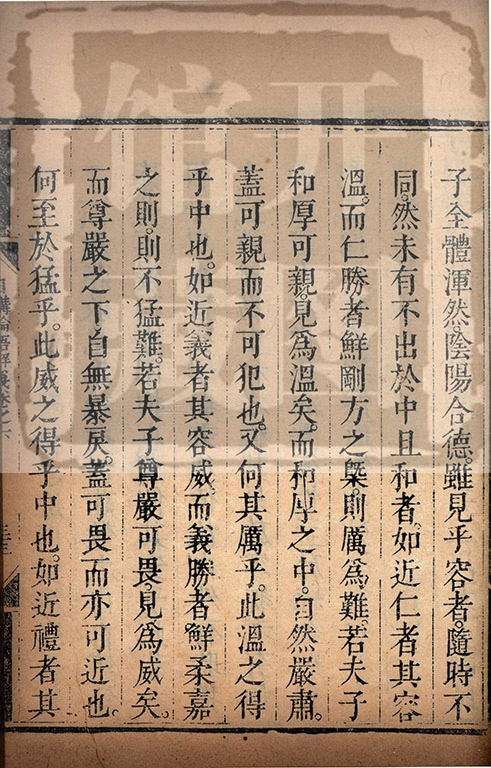 子全體渾然。陰陽合德。雖見乎容者。隨時不
同。然未有不出於中且和者。如近仁者其容
溫。而仁勝者鮮剛方之槩。則厲爲難。若夫子
和厚可親。見爲溫矣。而和厚之中。自然嚴肅。
蓋可親而不可犯也。又何其厲乎。此溫之得
乎中也。如近義者其容威。而義勝者鮮柔嘉
之則。則不猛難。若夫子尊嚴可畏。見爲威矣。
而尊嚴之下自無暴戾。蓋可畏而亦可近也。
何至於猛乎。此威之得乎中也。如近禮者其
日講論語解義卷之六